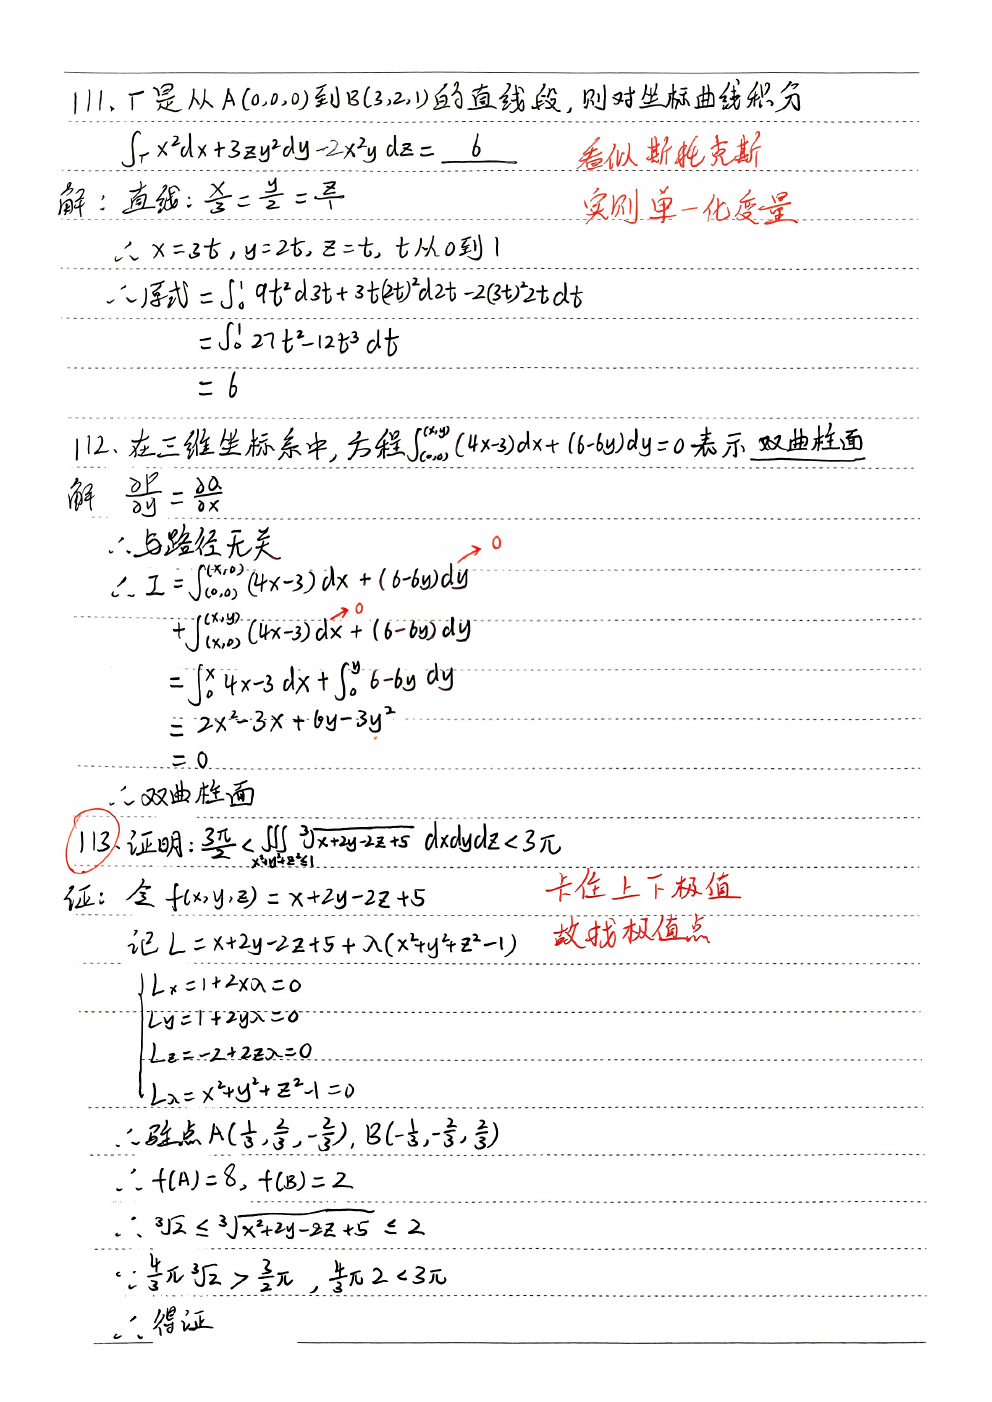 111、Γ是从A(0,0,0)到B(3,2,1)的直线段,则对坐标曲线积分
∫_Γ x²dx+3zy²dy-2x²y dz= 6
看似斯托克斯
解: 直线: x/3=y/2=z/1
实则单一化变量
∴ x=3t, y=2t, z=t, t从0到1
∴原式 = ∫₀¹ 9t²d3t+3t(2t)²d2t-2(3t)²2t dt
= ∫₀¹ 27t²-12t³ dt
= 6
112、在三维坐标系中,方程∫_(0,0)^(x,y) (4x-3)dx+(6-6y)dy=0 表示 双曲柱面
解 ∂P/∂y = ∂Q/∂x
∴与路径无关
0
∴ I = ∫_(0,0)^(x,0) (4x-3)dx+(6-6y)dy
0
+∫_(x,0)^(x,y) (4x-3)dx+(6-6y)dy
= ∫₀ˣ 4x-3 dx+∫₀ʸ 6-6y dy
= 2x²-3x+6y-3y²
= 0
∴双曲柱面
113、证明: 3π/2 < ∭_(x²+y²+z²≤1) ³√(x+2y-2z+5) dxdydz<3π
证: 令 f(x,y,z)= x+2y-2z+5
卡住上下极值
记 L=x+2y-2z+5+λ(x²+y²+z²-1)
故找极值点
Lx=1+2xλ=0
Ly=1+2yλ=0
Lz=-2+2zλ=0
Lλ=x²+y²+z²-1=0
∴驻点 A(1/3, 2/3, -2/3), B(-1/3, -2/3, 2/3)
∴ f(A)=8, f(B)=2
∴ ³√2 ≤ ³√(x²+2y-2z+5) ≤ 2
∵ 4/3 π ³√2 > 3/2 π , 4/3 π 2 < 3π
∴ 得证